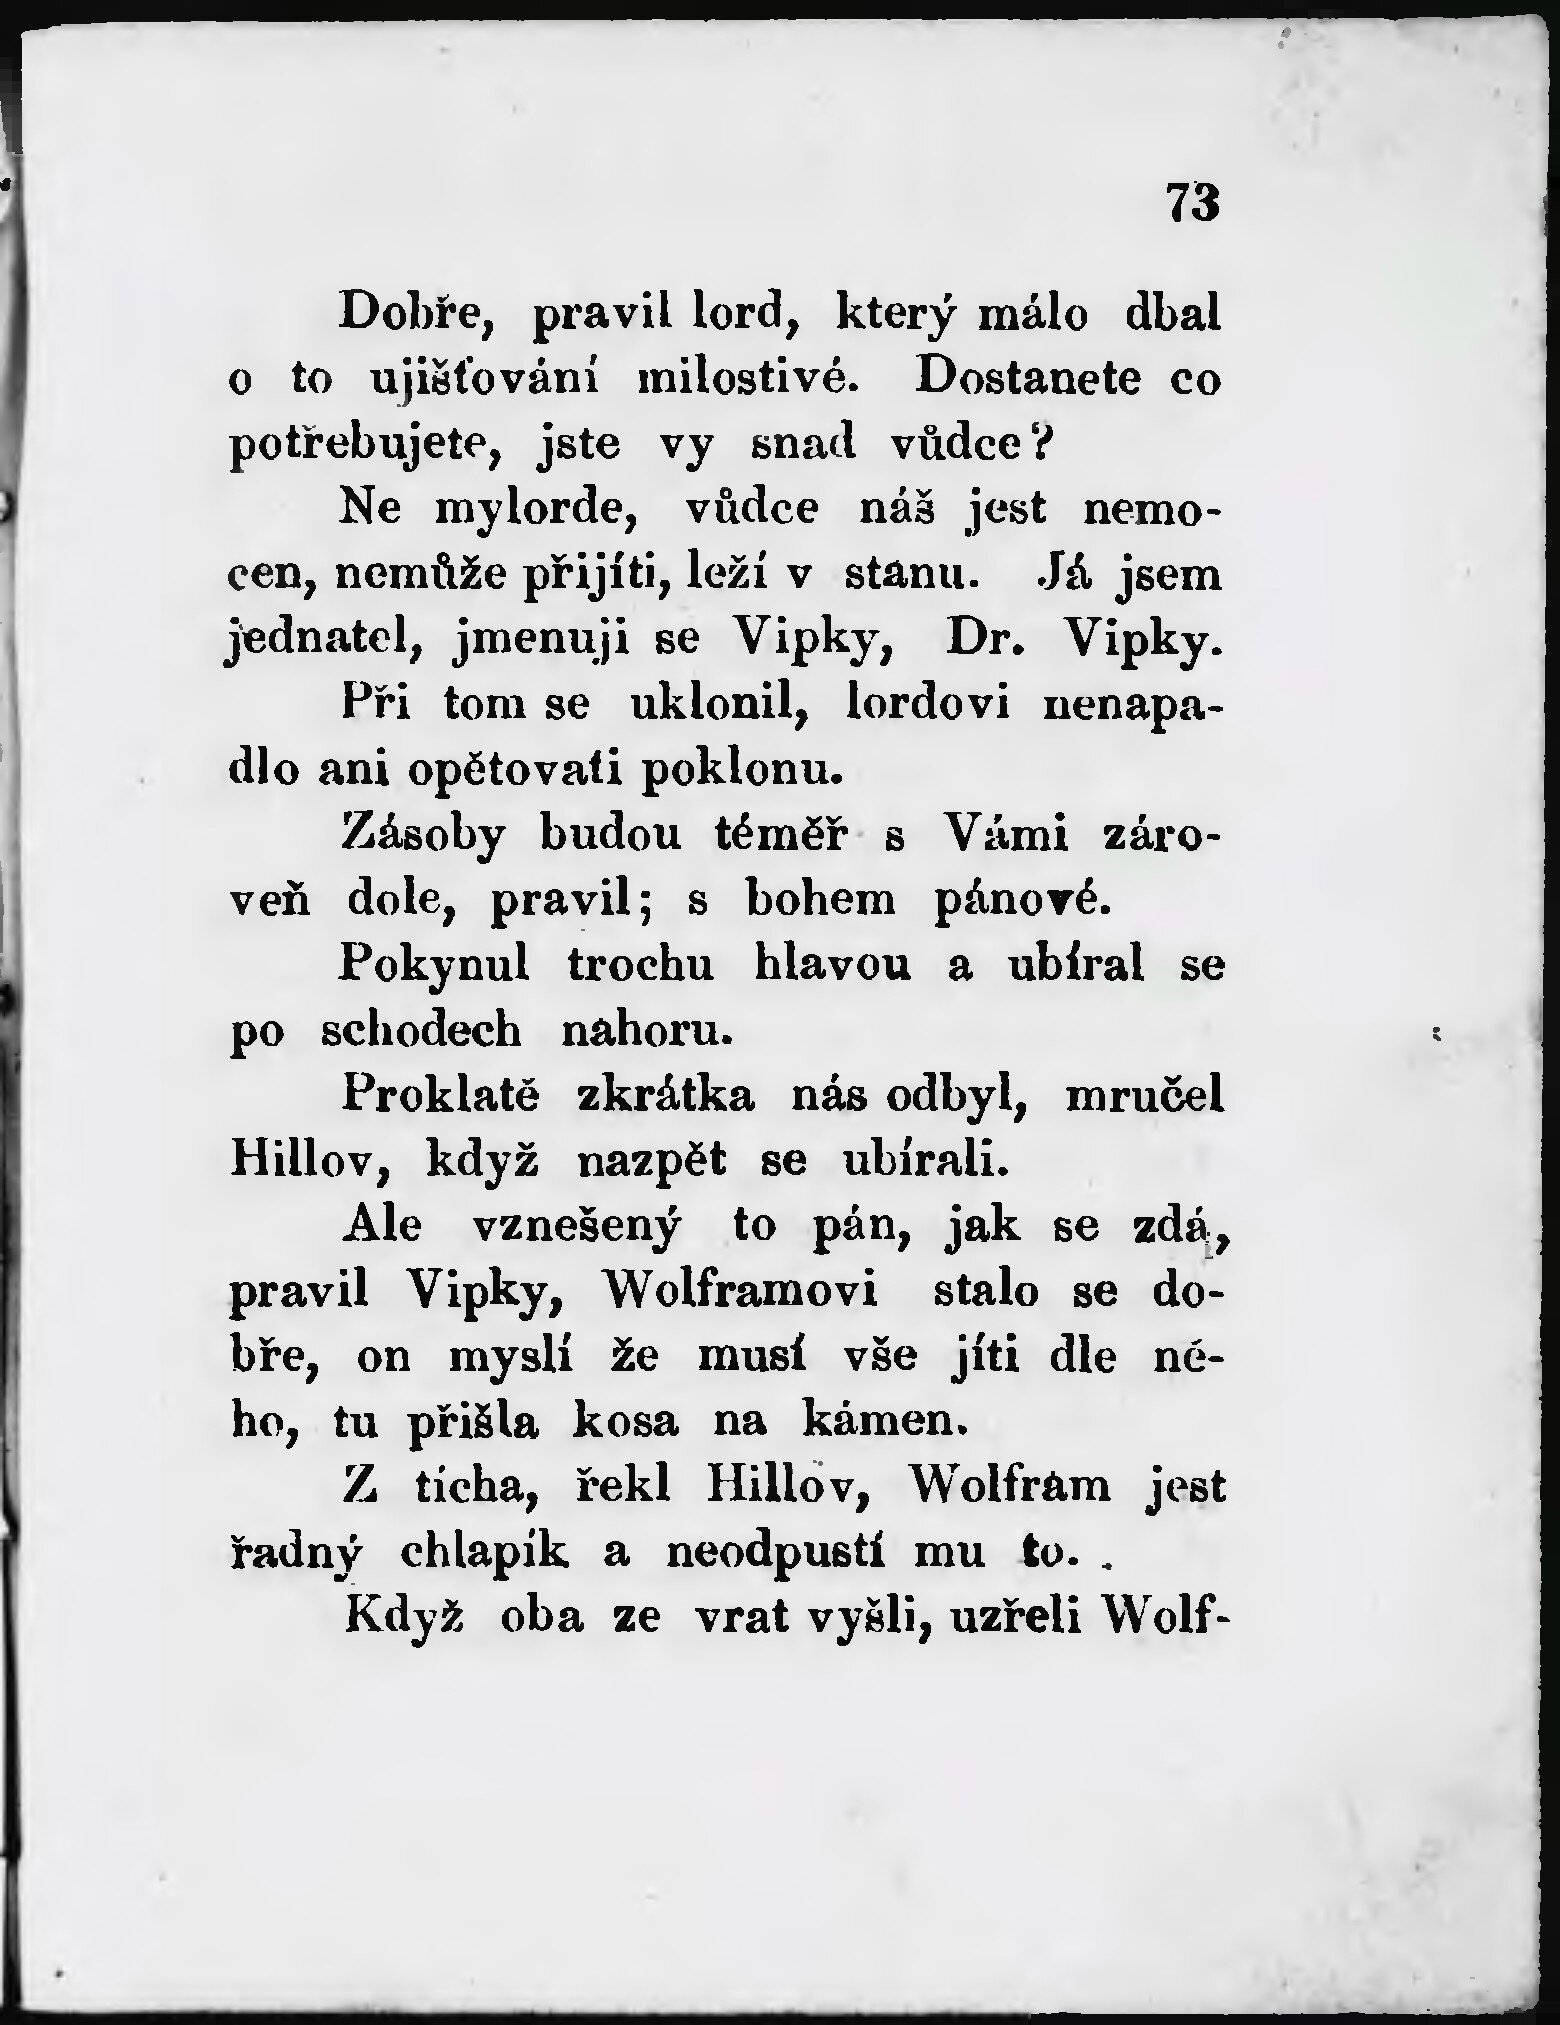 73
Dobře, pravil lord, který málo dbal
o to ujišťování milostivé. Dostanete co
potřebujete, jste vy snad vůdce?
Ne mylorde, vůdce náš jest nemo-
cen, nemůže přijíti, leží v stanu. Já jsem
jednatel, jmenuji se Vipky, Dr. Vipky.
Při tom se uklonil, lordovi nenapa-
dlo ani opětovati poklonu.
Zásoby budou téměř s Vámi záro-
veň dole, pravil; s bohem pánové.
Pokynul trochu hlavou a ubíral se
po schodech nahoru.
Proklatě zkrátka nás odbyl, mručel
Hillov, když nazpět se ubírali.
Ale vznešený to pán, jak se zdá,
pravil Vipky, Wolframovi stalo se do-
bře, on myslí že musí vše jíti dle né-
ho, tu přišla kosa na kámen.
Z ticha, řekl Hillov, Wolfram jest
řadný chlapík a neodpustí mu to.
Když oba ze vrat vyšli, uzřeli Wolf-